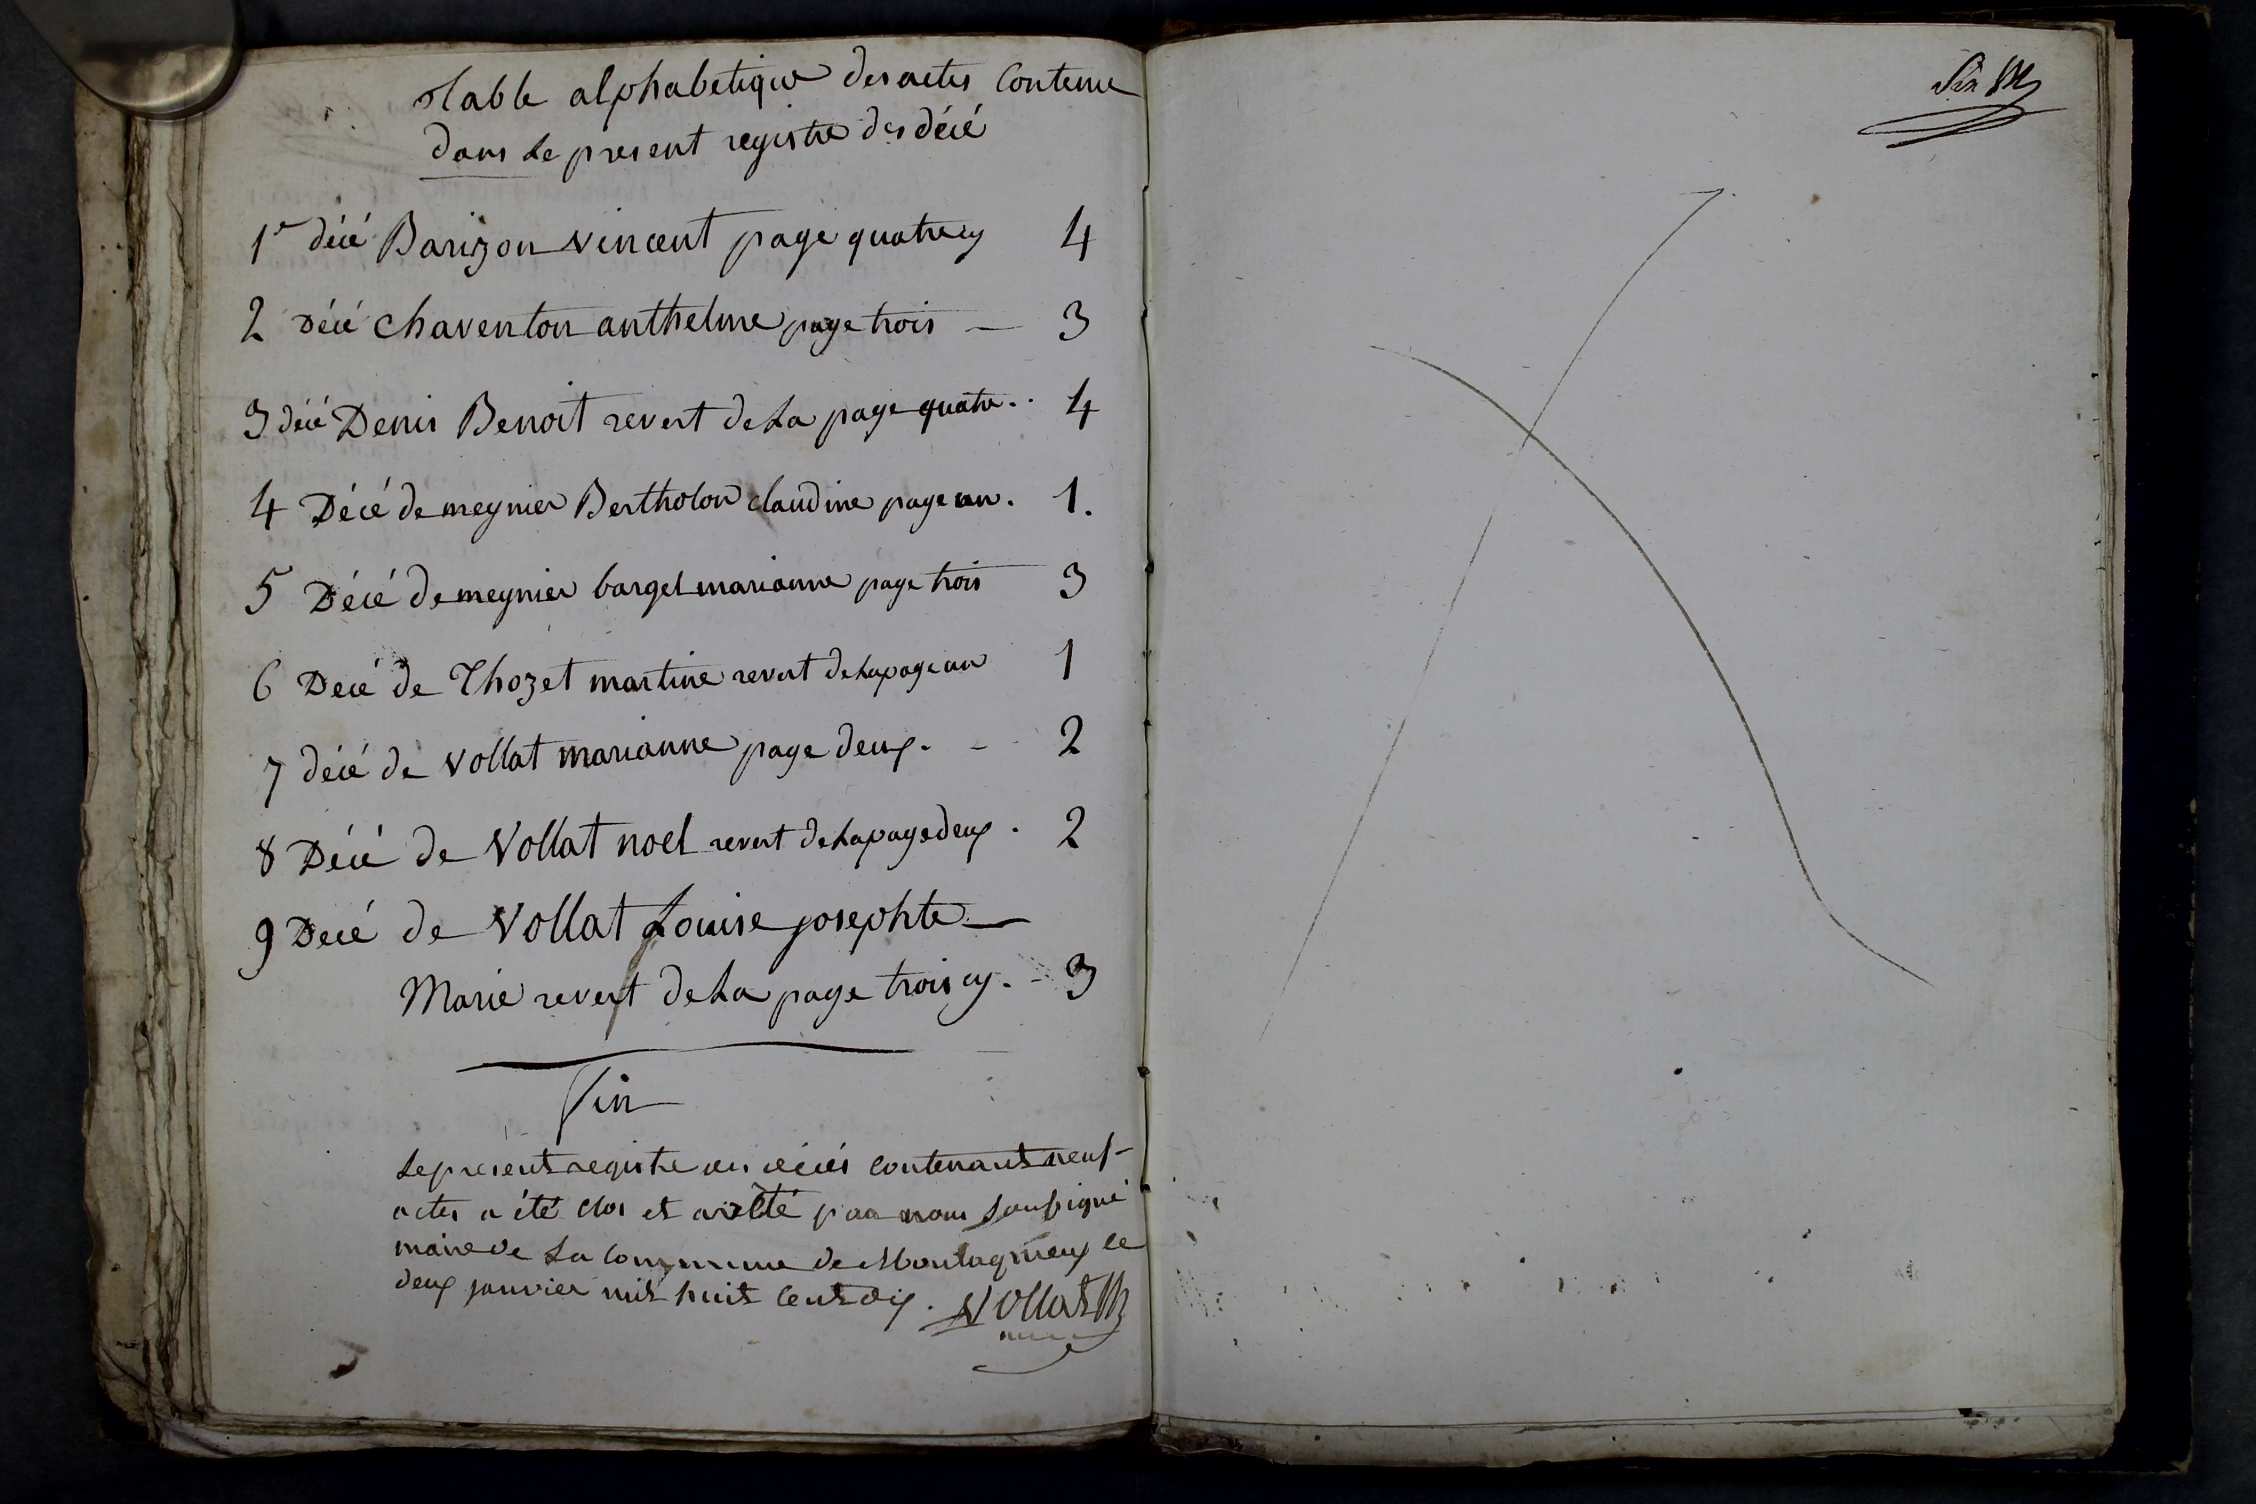 Table alphabetique des actes Contenu
dans Le present registre des décé
1e décé Barizon vincent page quatre cy 4
2 Décé chaventon anthelme page trois — 3
3 décé Denis Benoit revert de La page quatre . . 4
4 Décé de meynier Bertholon claudine page un . 1.
5 Décé de meynier barget marianne page trois 3
6 Decé de Thozet martine revert de La page un 1
7 décé de vollat marianne page deux . - 2
8 Décé de Vollat noel revert de La page deux . 2
9 Decé de Vollat Louise josephte —
Marie revert de La page trois cy . - 3
fin
Le present registre des décés contenant neuf
actes a été clos et arreté par nous soussigné
maire de La commune de Montagnieux le
deux janvier mil huit cent dix . Vollat M
Six